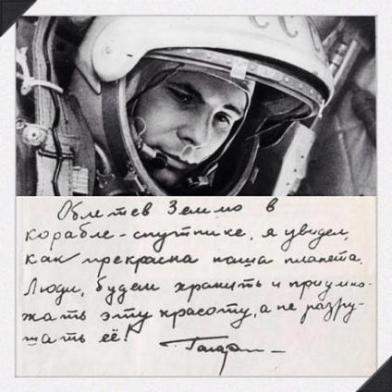 СС
Облетев Землю в
корабле-спутнике, я увидел,
как прекрасна наша планета.
Люди, будем хранить и приумно-
жать эту красоту, а не разру-
шать её!
Гагарин